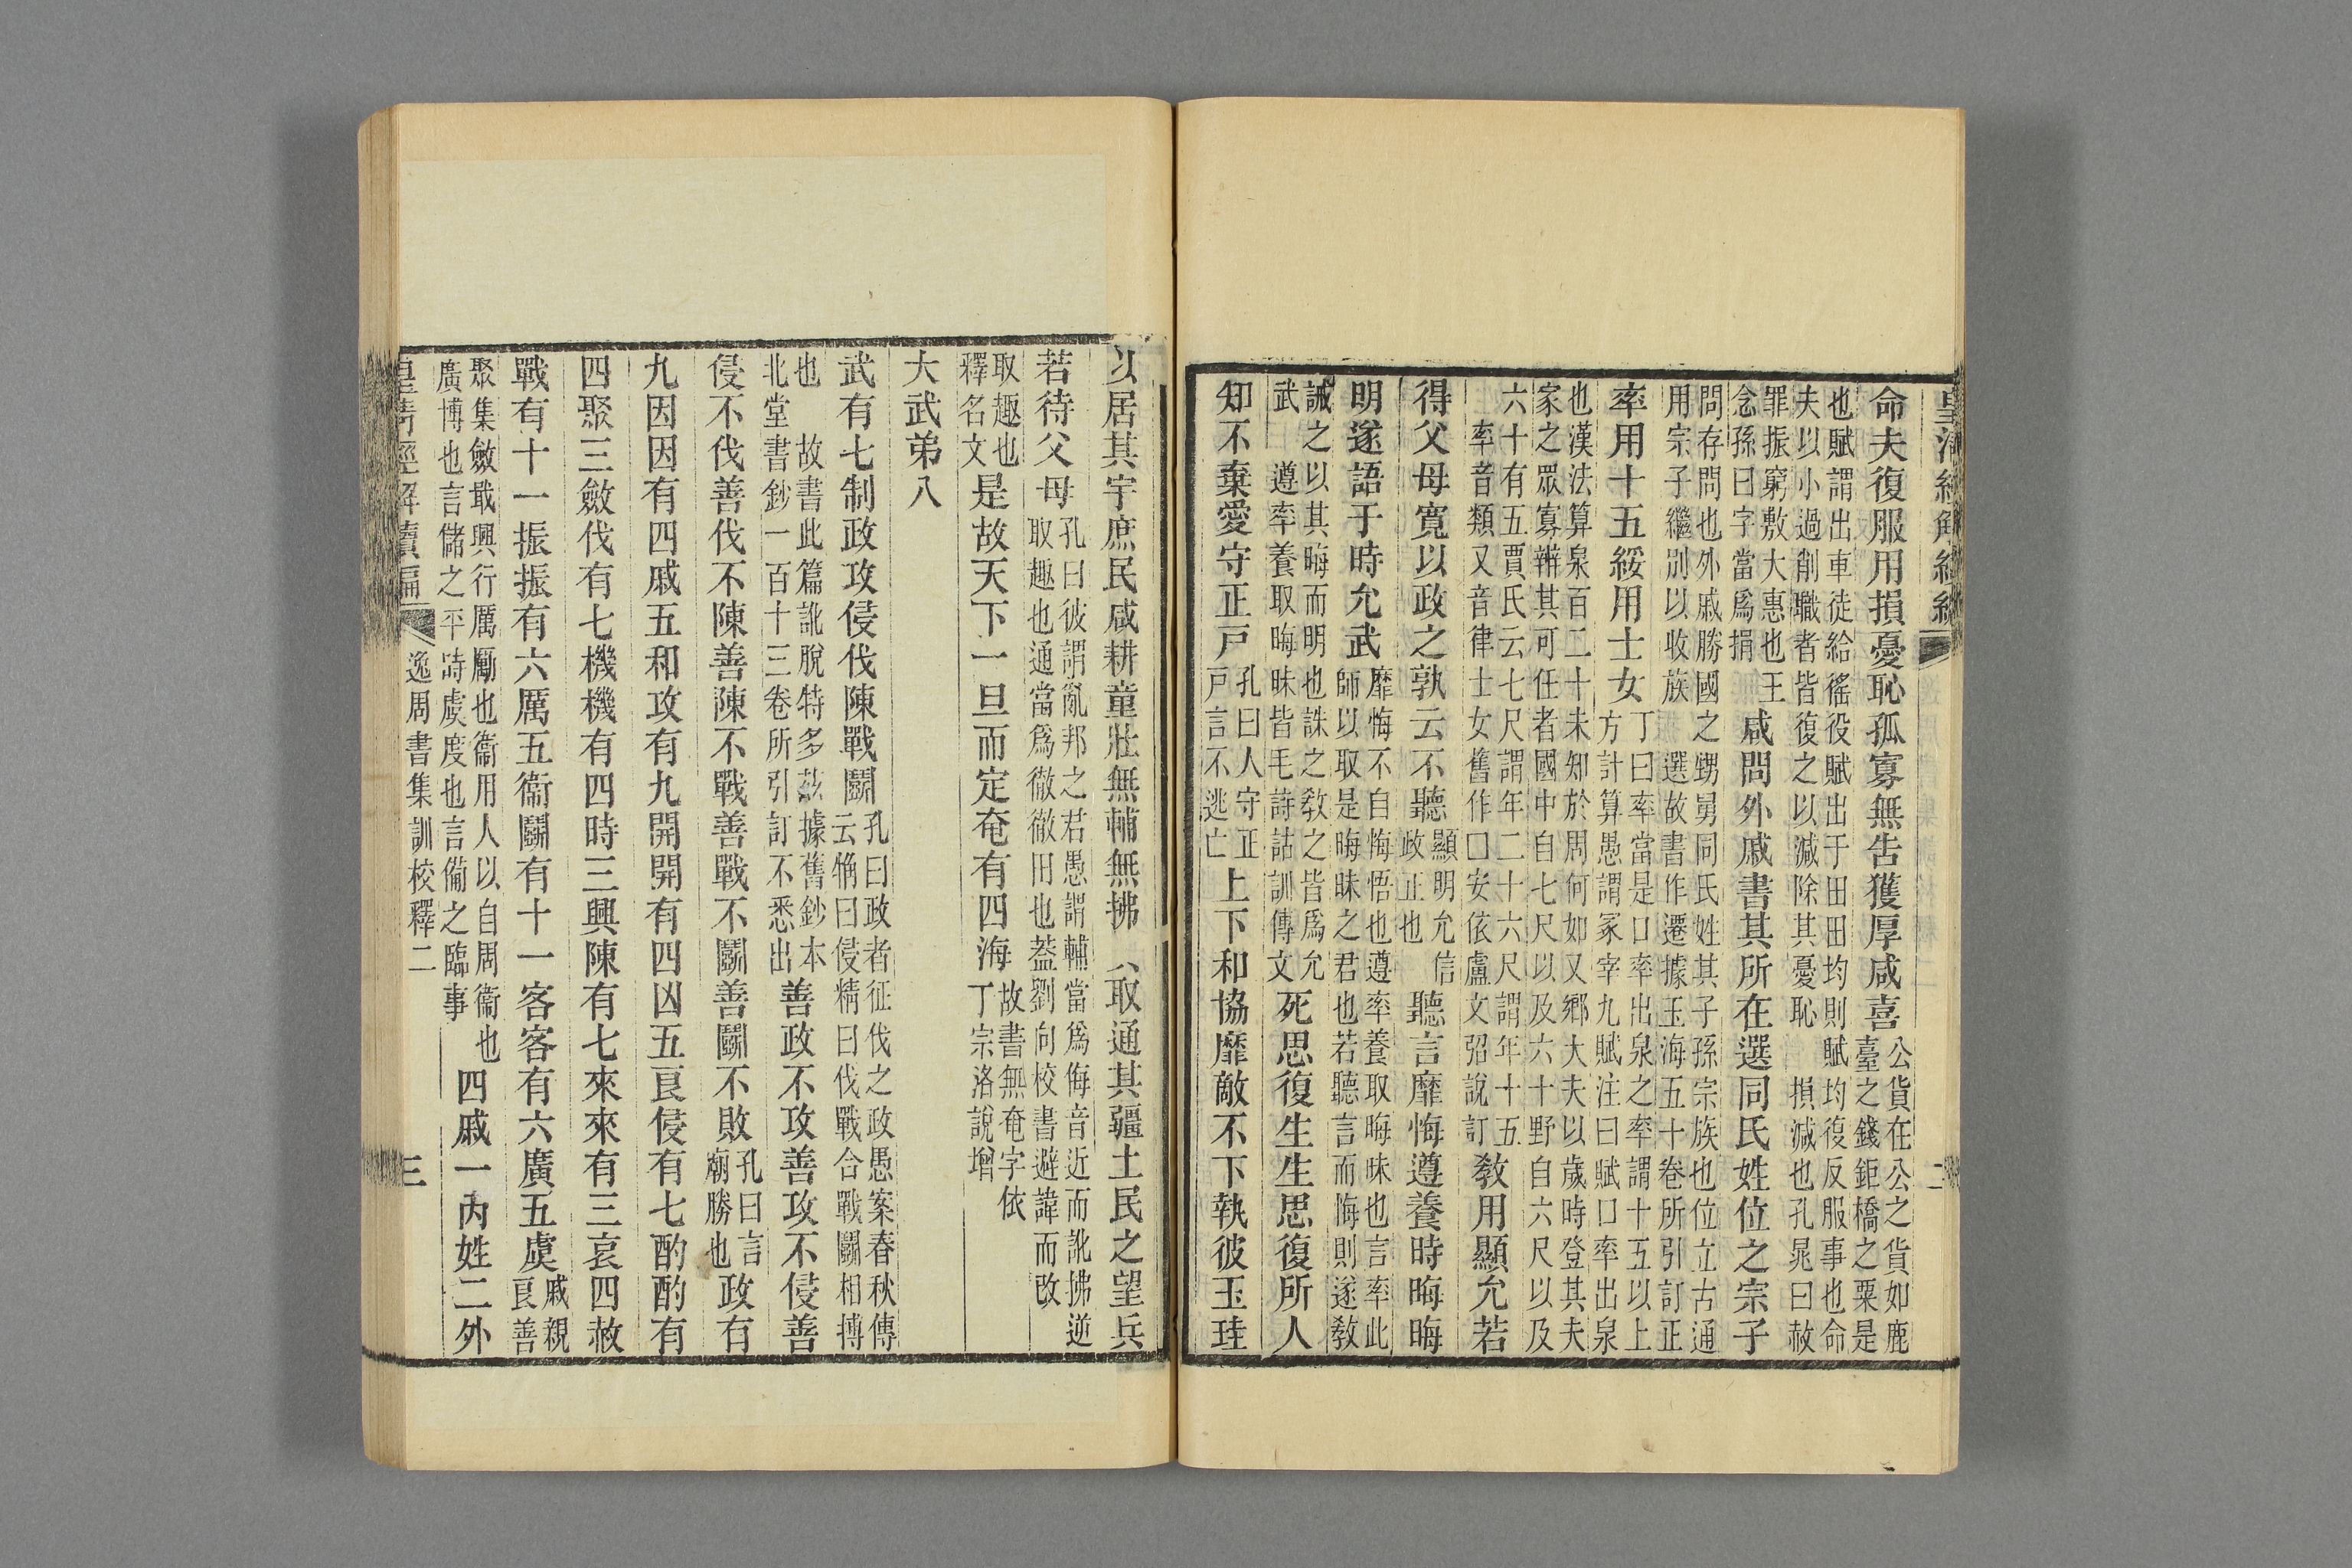 命夫復服用損憂恥孤寡無告獲厚咸喜公貨在公之貨如鹿臺之錢鉅橋之粟是
也賦謂出車徒給徭役賦出于田田均則賦均復反服事也命夫以小過削職者皆復之以減除其憂恥 損減也孔晁曰赦
罪振窮敷大惠也王念孫曰字當爲捐咸問外戚書其所在選同氏姓位之宗子
問存問也外戚勝國之甥舅同氏姓其子孫宗族也位立古通用宗子繼別以收族 選故書作遷據玉海五十卷所引訂正
率用十五綏用士女丁曰率當是口率出泉之率謂十五以上方計算愚謂冢宰九賦注曰賦口率出泉
也漢法算泉百二十未知於周何如又鄉大夫以歲時登其夫家之眾寡辨其可任者國中自七尺以及六十野自六尺以及
六十有五賈氏云七尺謂年二十六尺謂年十五 率音類又音律士女舊作囗安依盧文弨說訂敎用顯允若
得父母寬以政之孰云不聽顯明允信政正也聽言靡悔遵養時晦晦
明遂語于時允武靡悔不自悔悟也遵率養取晦昧也言率此師以取是晦昧之君也若聽言而悔則遂敎
誡之以其晦而明也誅之敎之皆爲允武 遵率養取晦昧皆毛詩詁訓傳文死思復生生思復所人
知不棄愛守正戸孔曰人守正戸言不逃亡上下和協靡敵不下執彼玉珪
以居其宇庶民咸耕童壯無輔無拂其取通其疆土民之望兵
若待父母孔曰彼謂亂邦之君愚謂輔當爲侮音近而訛拂逆取趣也通當爲徹徹田也葢劉向校書避諱而改
取趣也釋名文是故天下一旦而定奄有四海故書無奄字依丁宗洛說增
大武弟八
武有七制政攻侵伐陳戰鬭孔曰政者征伐之政愚案春秋傳云觕曰侵精曰伐戰合戰鬭相搏
也 故書此篇訛脫特多茲據舊鈔本北堂書鈔一百十三卷所引訂不悉出善政不攻善攻不侵善
侵不伐善伐不陳善陳不戰善戰不鬭善鬭不敗孔曰言廟勝也政有
九因因有四戚五和攻有九開開有四凶五良侵有七酌酌有
四聚三斂伐有七機機有四時三興陳有七來來有三哀四赦
戰有十一振振有六厲五衞鬭有十一客客有六廣五虞戚親良善
聚集斂㝡興行厲勵也衞用人以自周衞也廣博也言儲之平時虞度也言僃之臨事四戚一內姓二外
皇清經解續編 逸周書集訓校釋二 三